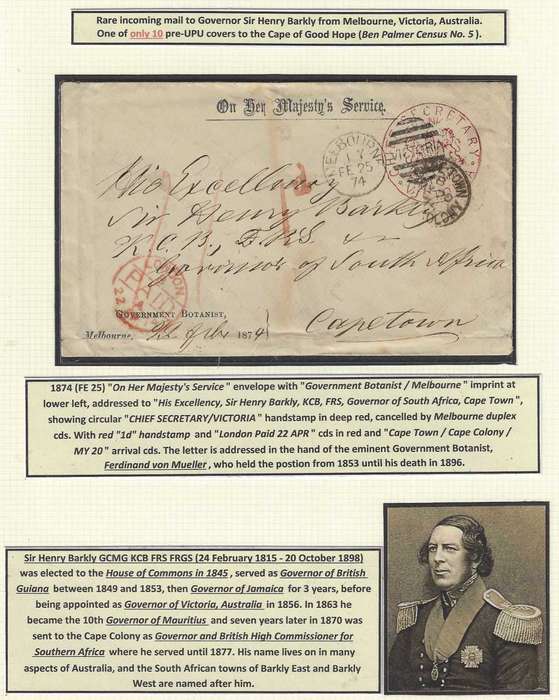 Rare incoming mail to Governor Sir Henry Barkly from Melbourne, Victoria, Australia.
One of only 10 pre-UPU covers to the Cape of Good Hope (Ben Palmer Census No. 5).
On Her Majesty's Service.
CHIEF SECRETARY
VICTORIA
MELBOURNE
FE 25
74
His Excellency
Sir Henry Barkly
K.C.B., F.R.S. &
Governor of South Africa
Capetown
LONDON
22
GOVERNMENT BOTANIST,
Melbourne, 1874
1874 (FE 25) "On Her Majesty's Service" envelope with "Government Botanist / Melbourne" imprint at
lower left, addressed to "His Excellency, Sir Henry Barkly, KCB, FRS, Governor of South Africa, Cape Town",
showing circular "CHIEF SECRETARY/VICTORIA" handstamp in deep red, cancelled by Melbourne duplex
cds. With red "1d" handstamp and "London Paid 22 APR" cds in red and "Cape Town / Cape Colony /
MY 20" arrival cds. The letter is addressed in the hand of the eminent Government Botanist,
Ferdinand von Mueller, who held the postion from 1853 until his death in 1896.
Sir Henry Barkly GCMG KCB FRS FRGS (24 February 1815 - 20 October 1898)
was elected to the House of Commons in 1845, served as Governor of British
Guiana between 1849 and 1853, then Governor of Jamaica for 3 years, before
being appointed as Governor of Victoria, Australia in 1856. In 1863 he
became the 10th Governor of Mauritius and seven years later in 1870 was
sent to the Cape Colony as Governor and British High Commissioner for
Southern Africa where he served until 1877. His name lives on in many
aspects of Australia, and the South African towns of Barkly East and Barkly
West are named after him.